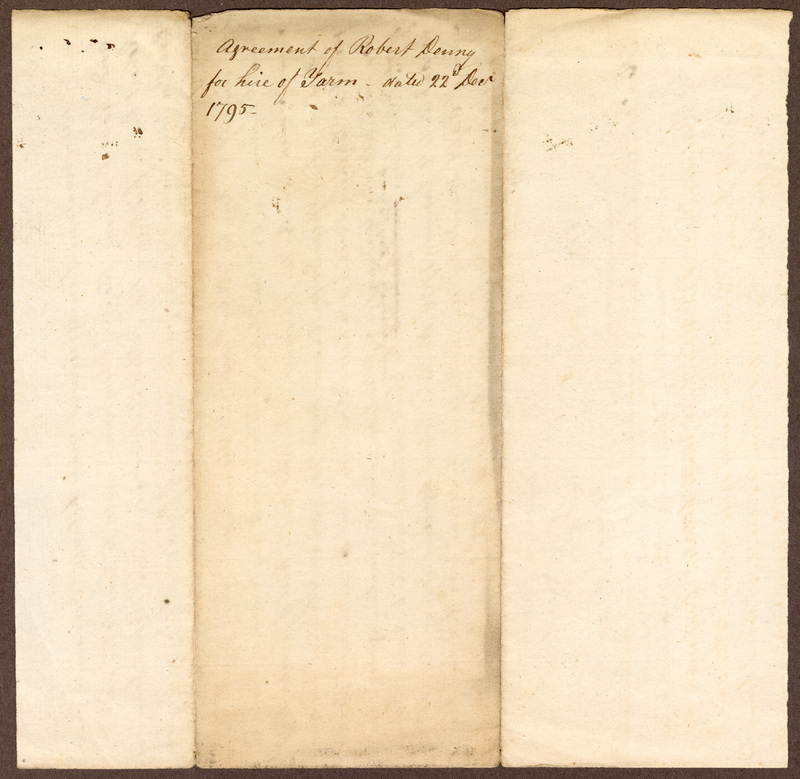 Agreement of Robert Denny
for hire of Farm - dated 22d Decr
1795-